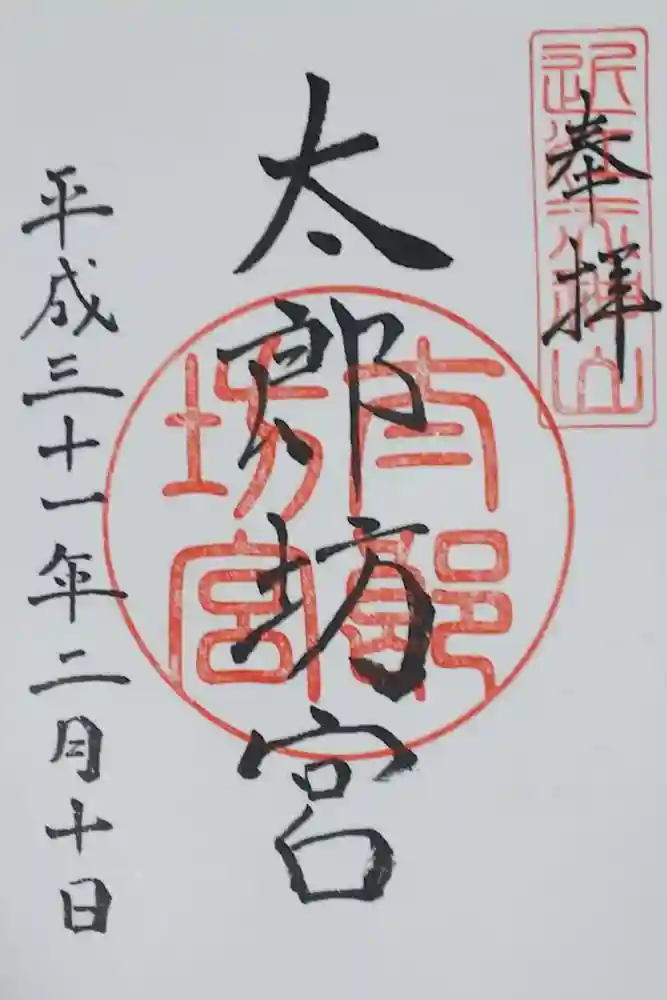 奉拝
太郎坊宮
太郎坊宮
平成三十一年二月十日